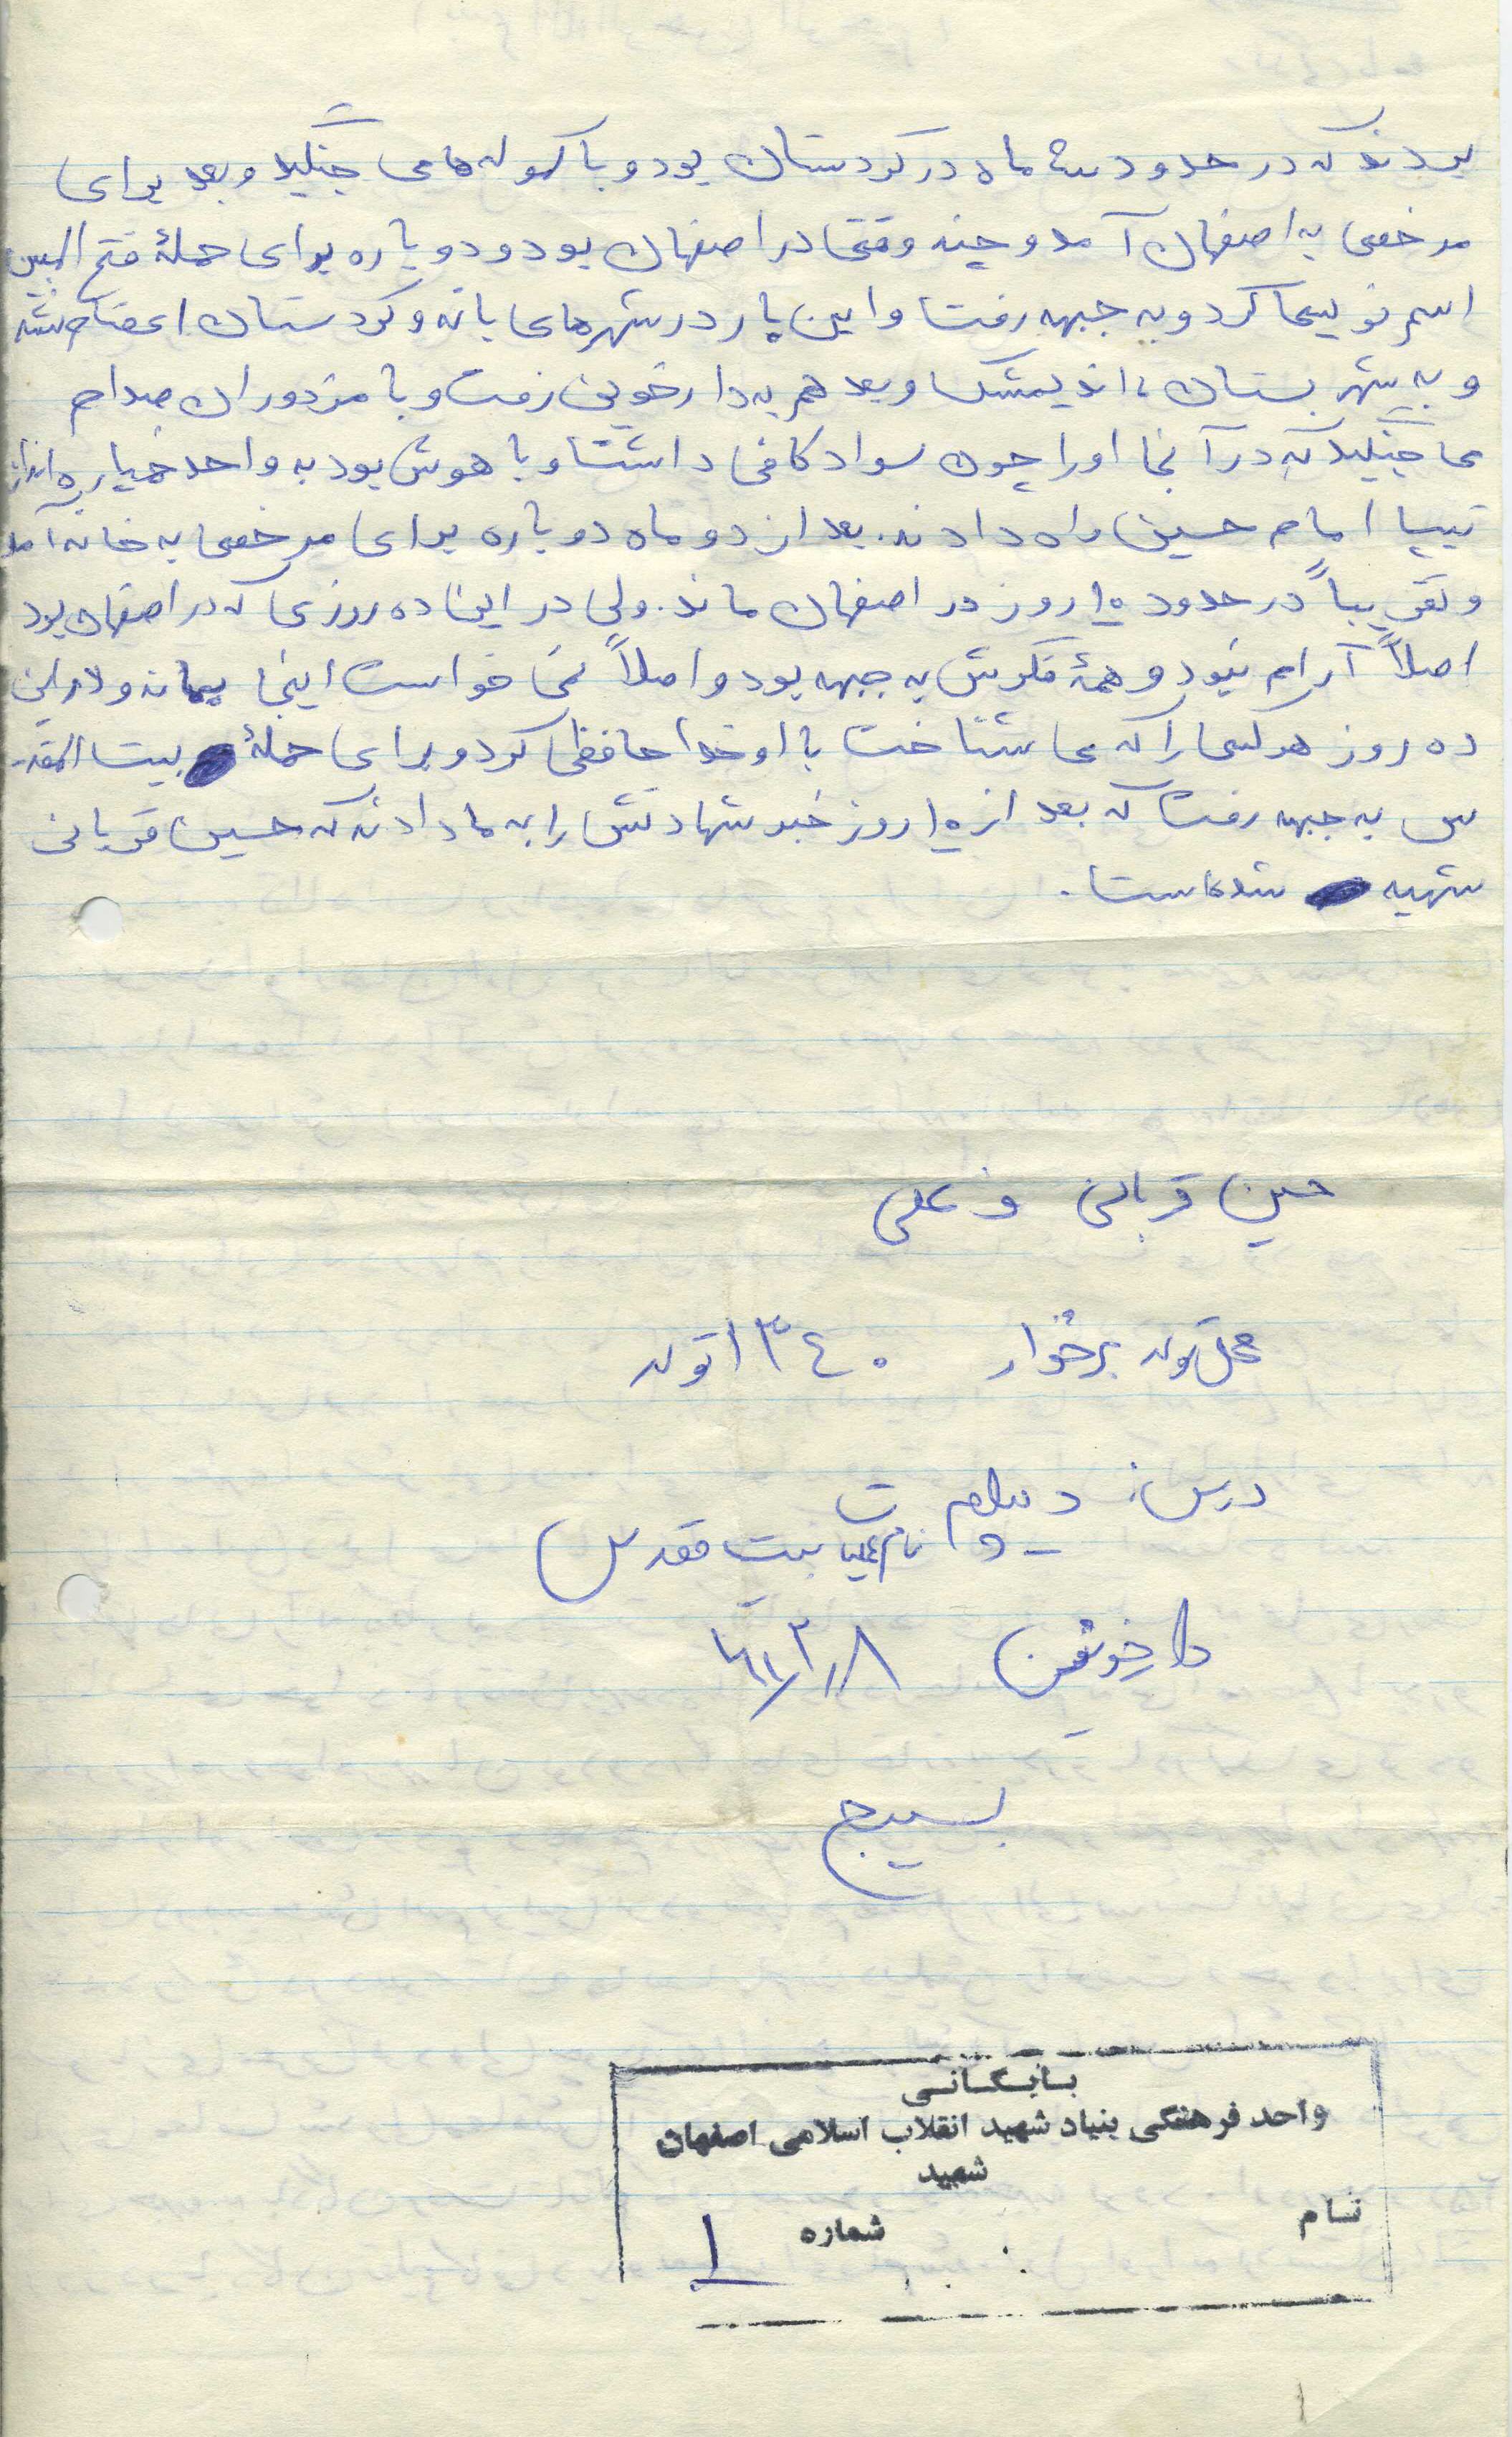 بردند که در حدود شش ماه در کردستان بود و با کموله ها می جنگید و بعد برای
مرخصی به اصفهان آمد و چند وقتی در اصفهان بود و دوباره برای حملهٔ فتح المبین
اسم نویسی کرد و به جبهه رفت و این بار در شهرهای بانه و کردستان اعضام شد
و به شهر بستان، اندیمشک و بعد هم به دارخوین رفت و با مزدوران صدام
می جنگید که در آنجا او را چون سواد کافی داشت و با هوش بود به واحد خمپاره انداز
تیپ امام حسین راه دادند. بعد از دو ماه دوباره برای مرخصی به خانه آمد
و تقریباً در حدود ۱۰ روز در اصفهان ماند. ولی در این ده روزی که در اصفهان بود
اصلاً آرام نبود و همهٔ فکرش به جبهه بود و اصلاً نمی خواست اینجا بماند و در این
ده روز هر کسی را که می شناخت با او خدا حافظی کرد و برای حملهٔ بیت المقد
س به جبهه رفت که بعد از ۱۰ روز خبر شهادتش را به ما دادند که حسین قربانی
شهید شده است.
حسین قربانی ف علی
محل تولد برخوار ۱۳۴۰ تولد
درس: دیپلم
نام عملیات بیت مقدس
دارخوین ۶۱/۲/۱۸
بسیج
بایگانی
واحد فرهنگی بنیاد شهید انقلاب اسلامی اصفهان
شهید
نام شماره ۱